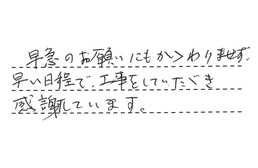 早急のお願いにもかゝわりませず、
早い日程で、工事をしていたゞき
感謝しています。